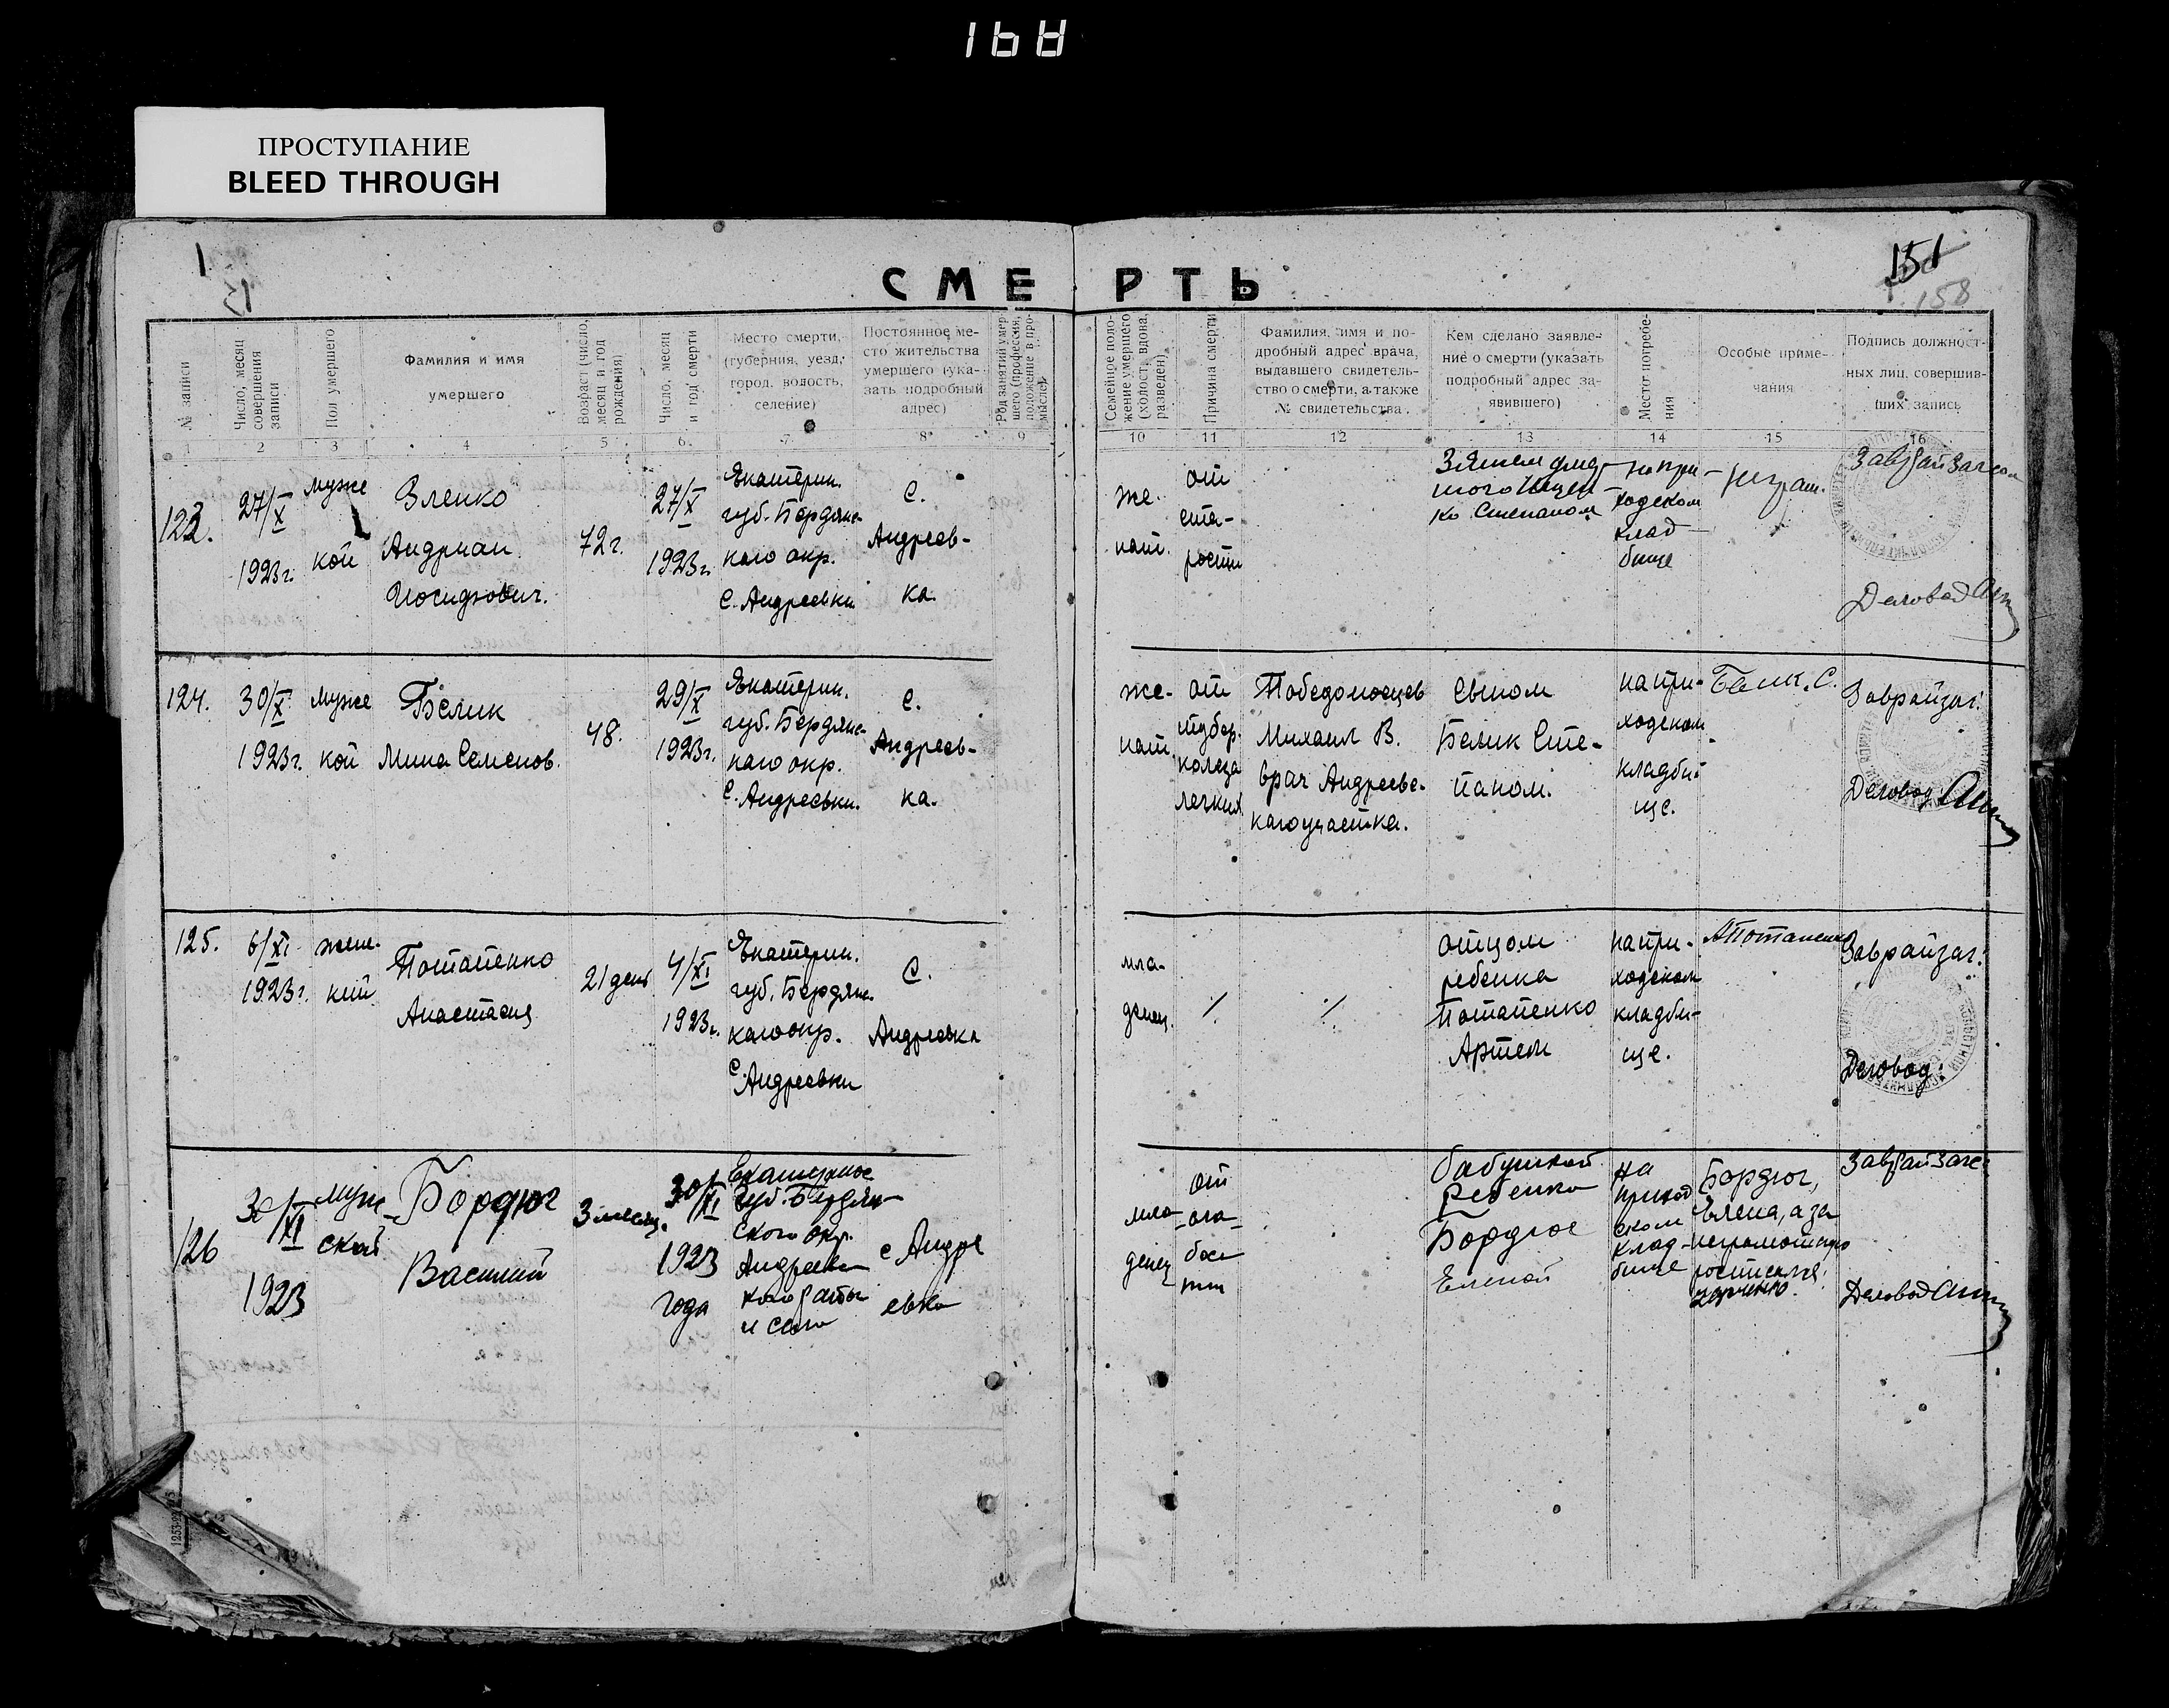 168
ПРОСТУПАНИЕ
BLEED THROUGH
1
151
158
СМЕРТЬ
№ записи
Число, месяц совершения записи
Пол умершего
Фамилия и имя
умершего
Возраст (число, месяц и год рождения)
Число, месяц и год смерти
Место смерти,
(губерния, уезд,
город, волость,
селение)
Постоянное ме-
сто жительства
умершего (ука-
зать подробный
адрес)
Род занятий умер-
шего (профессия,
положение в про-
мысле)
Семейное поло-
жение умершего
(холост, вдова,
разведен)
Причина смерти
Фамилия, имя и по-
дробный адрес врача,
выдавшего свидетель-
ство о смерти, а также
№ свидетельства.
Кем сделано заявле-
ние о смерти (указать
подробный адрес за-
явившего)
Место погребе-
ния
Особые приме-
чания
Подпись должност-
ных лиц, совершив-
ших запись
1 2 3 4 5 6 7 8 9 10 11 12 13 14 15 16
123.
27/X
1923г.
муже
кой
Зленко
Андриан
Иосифович.
72г.
27/X
1923г.
Екатерин.
губ. Бердянс-
каго окр.
с. Андреевки
с.
Андреев-
ка.
же-
нат.
от
ста-
рости
Зятем
Степаном
на при-
ходском
клад
бище
Неграм.
Заврайзагсом
Деловод
124.
30/X
1923г.
муже
кой
Белик
Мина Семенов.
48.
29/X
1923г.
Екатерин.
губ. Бердянс-
каго окр.
с. Андреевки.
с.
Андреев-
ка.
же-
нат.
от
тубер.
колеза
легких
Победоносцев
Михаил В.
врач Андреевс-
каго участка.
сыном
Белик Сте-
паном.
на при-
ходском
кладби-
ще.
Белик. С.
Заврайзаг:
Деловод
125.
6/XI
1923г.
жен-
кий
Потапенко
Анастасия
21 день
4/XI
1923г.
Екатерин.
губ. Бердянс-
каго окр.
с. Андреевки
с.
Андреевка
мла-
денец.
отцом
ребенка
Потапенко
Артем
на при-
ходском
кладби-
ще.
АПотапенко
Заврайзаг:
Деловод:
126
30/XI
1923
муж-
ской
Бордюг
Василий
3 месяц.
30/XI
1923
года
Екатеринос
губ. Бердян-
ского окр.
Андреевс
кого района
и села
с Андре
евка
мла-
денец
от
сла-
бос
ти
бабушкой
Ребенка
Бордюг
Еленой
на
приход
ском
клад-
бище
Бордюг,
Елена, а за
неграмотную
Заврайзагс:
Деловод
1253-22